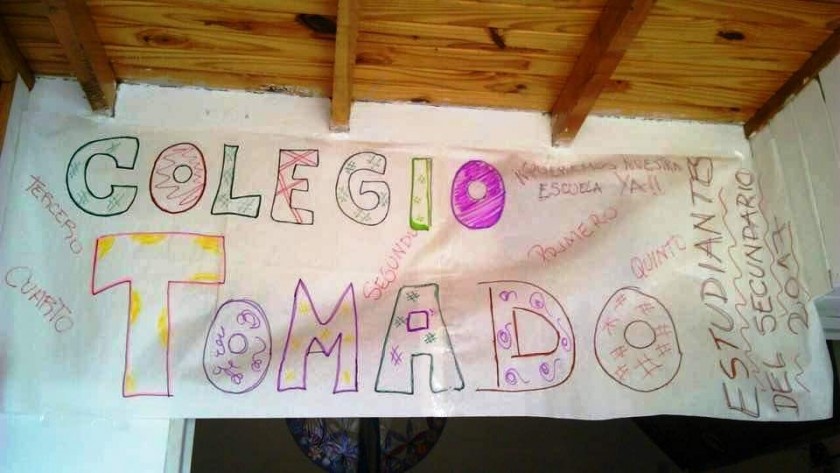 COLEGIO
¡¡QUEREMOS NUESTRA
ESCUELA YA!!
TERCERO
CUARTO
SEGUNDO
PRIMERO
QUINTO
TOMADO
ESTUDIANTES
DEL SECUNDARIO
2017